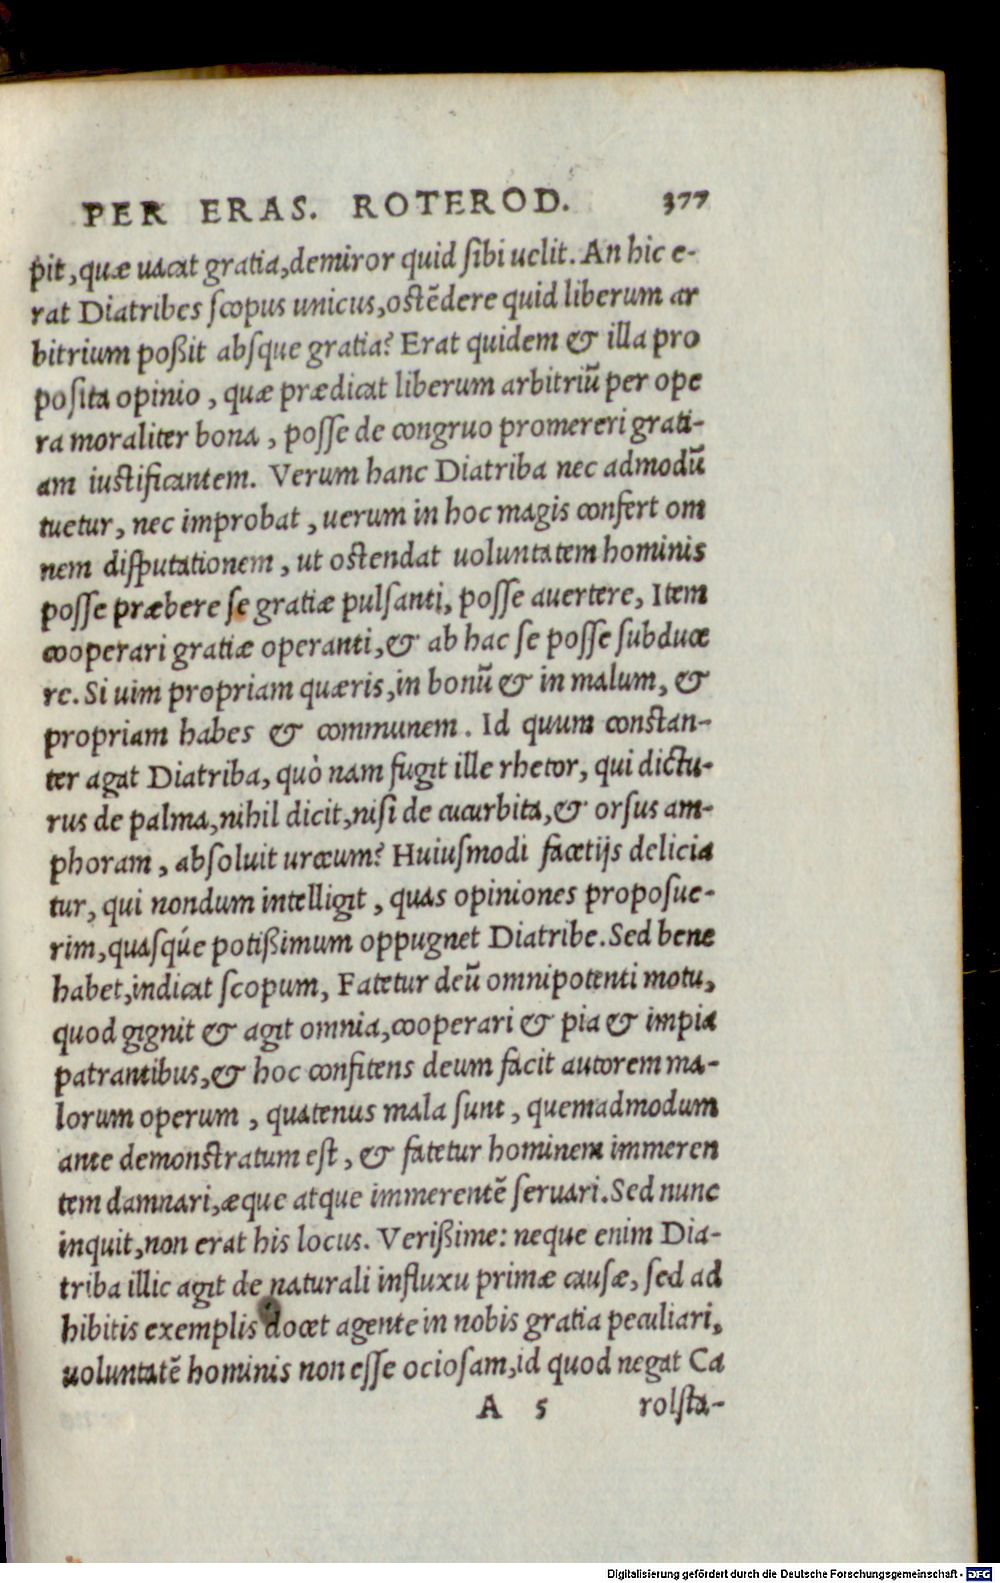 PER ERAS. ROTEROD. 377
pit, quæ uacat gratia, demiror quid sibi uelit. An hic e-
rat Diatribes scopus unicus, ostēdere quid liberum ar
bitrium poßit absque gratia? Erat quidem & illa pro
posita opinio, quæ prædicat liberum arbitriū per ope
ra moraliter bona, posse de congruo promereri grati-
am iustificantem. Verum hanc Diatriba nec admodū
tuetur, nec improbat, uerum in hoc magis confert om
nem disputationem, ut ostendat uoluntatem hominis
posse præbere se gratiæ pulsanti, posse auertere, Item
cooperari gratiæ operanti, & ab hac se posse subduce
re. Si uim propriam quæris, in bonū & in malum, &
propriam habes & communem. Id quum constan-
ter agat Diatriba, quò nam fugit ille rhetor, qui dictu-
rus de palma, nihil dicit, nisi de cucurbita, & orsus am-
phoram, absoluit urceum? Huiusmodi facetijs delicia
tur, qui nondum intelligit, quas opiniones proposue-
rim, quasqúe potißimum oppugnet Diatribe. Sed bene
habet, indicat scopum, Fatetur deū omnipotenti motu,
quod gignit & agit omnia, cooperari & pia & impia
patrantibus, & hoc confitens deum facit autorem ma-
lorum operum, quatenus mala sunt, quemadmodum
ante demonstratum est, & fatetur hominem immeren
tem damnari, æque atque immerentē seruari. Sed nunc
inquit, non erat his locus. Verißime: neque enim Dia-
triba illic agit de naturali influxu primæ causæ, sed ad
hibitis exemplis docet agente in nobis gratia peculiari,
uoluntatē hominis non esse ociosam, id quod negat Ca
A 5 rolsta-
Digitalisierung gefördert durch die Deutsche Forschungsgemeinschaft - DFG